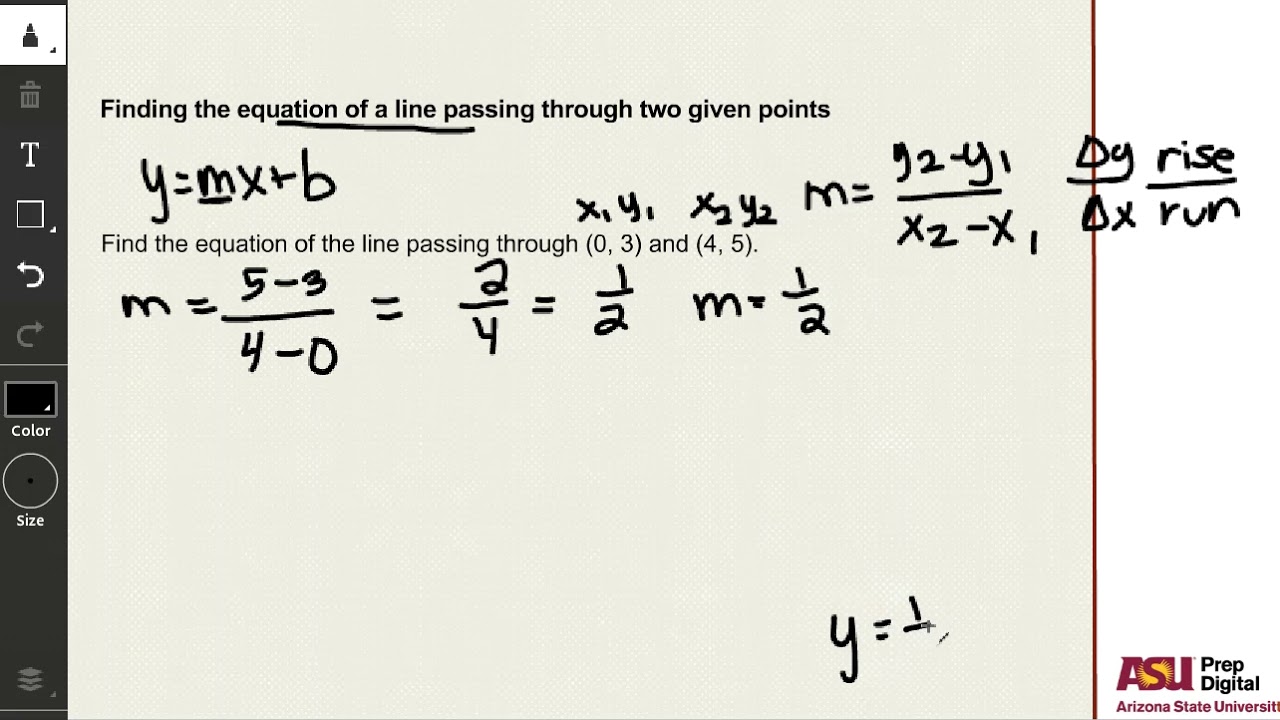 T
Color
Size
Finding the equation of a line passing through two given points
y=mx+b
m= y2-y1 / x2-x1 Δy/Δx rise/run
x1 y1 x2 y2
Find the equation of the line passing through (0, 3) and (4, 5).
m = 5-3 / 4-0 = 2/4 = 1/2 m=1/2
y=1
ASU Prep
Digital
Arizona State Universit